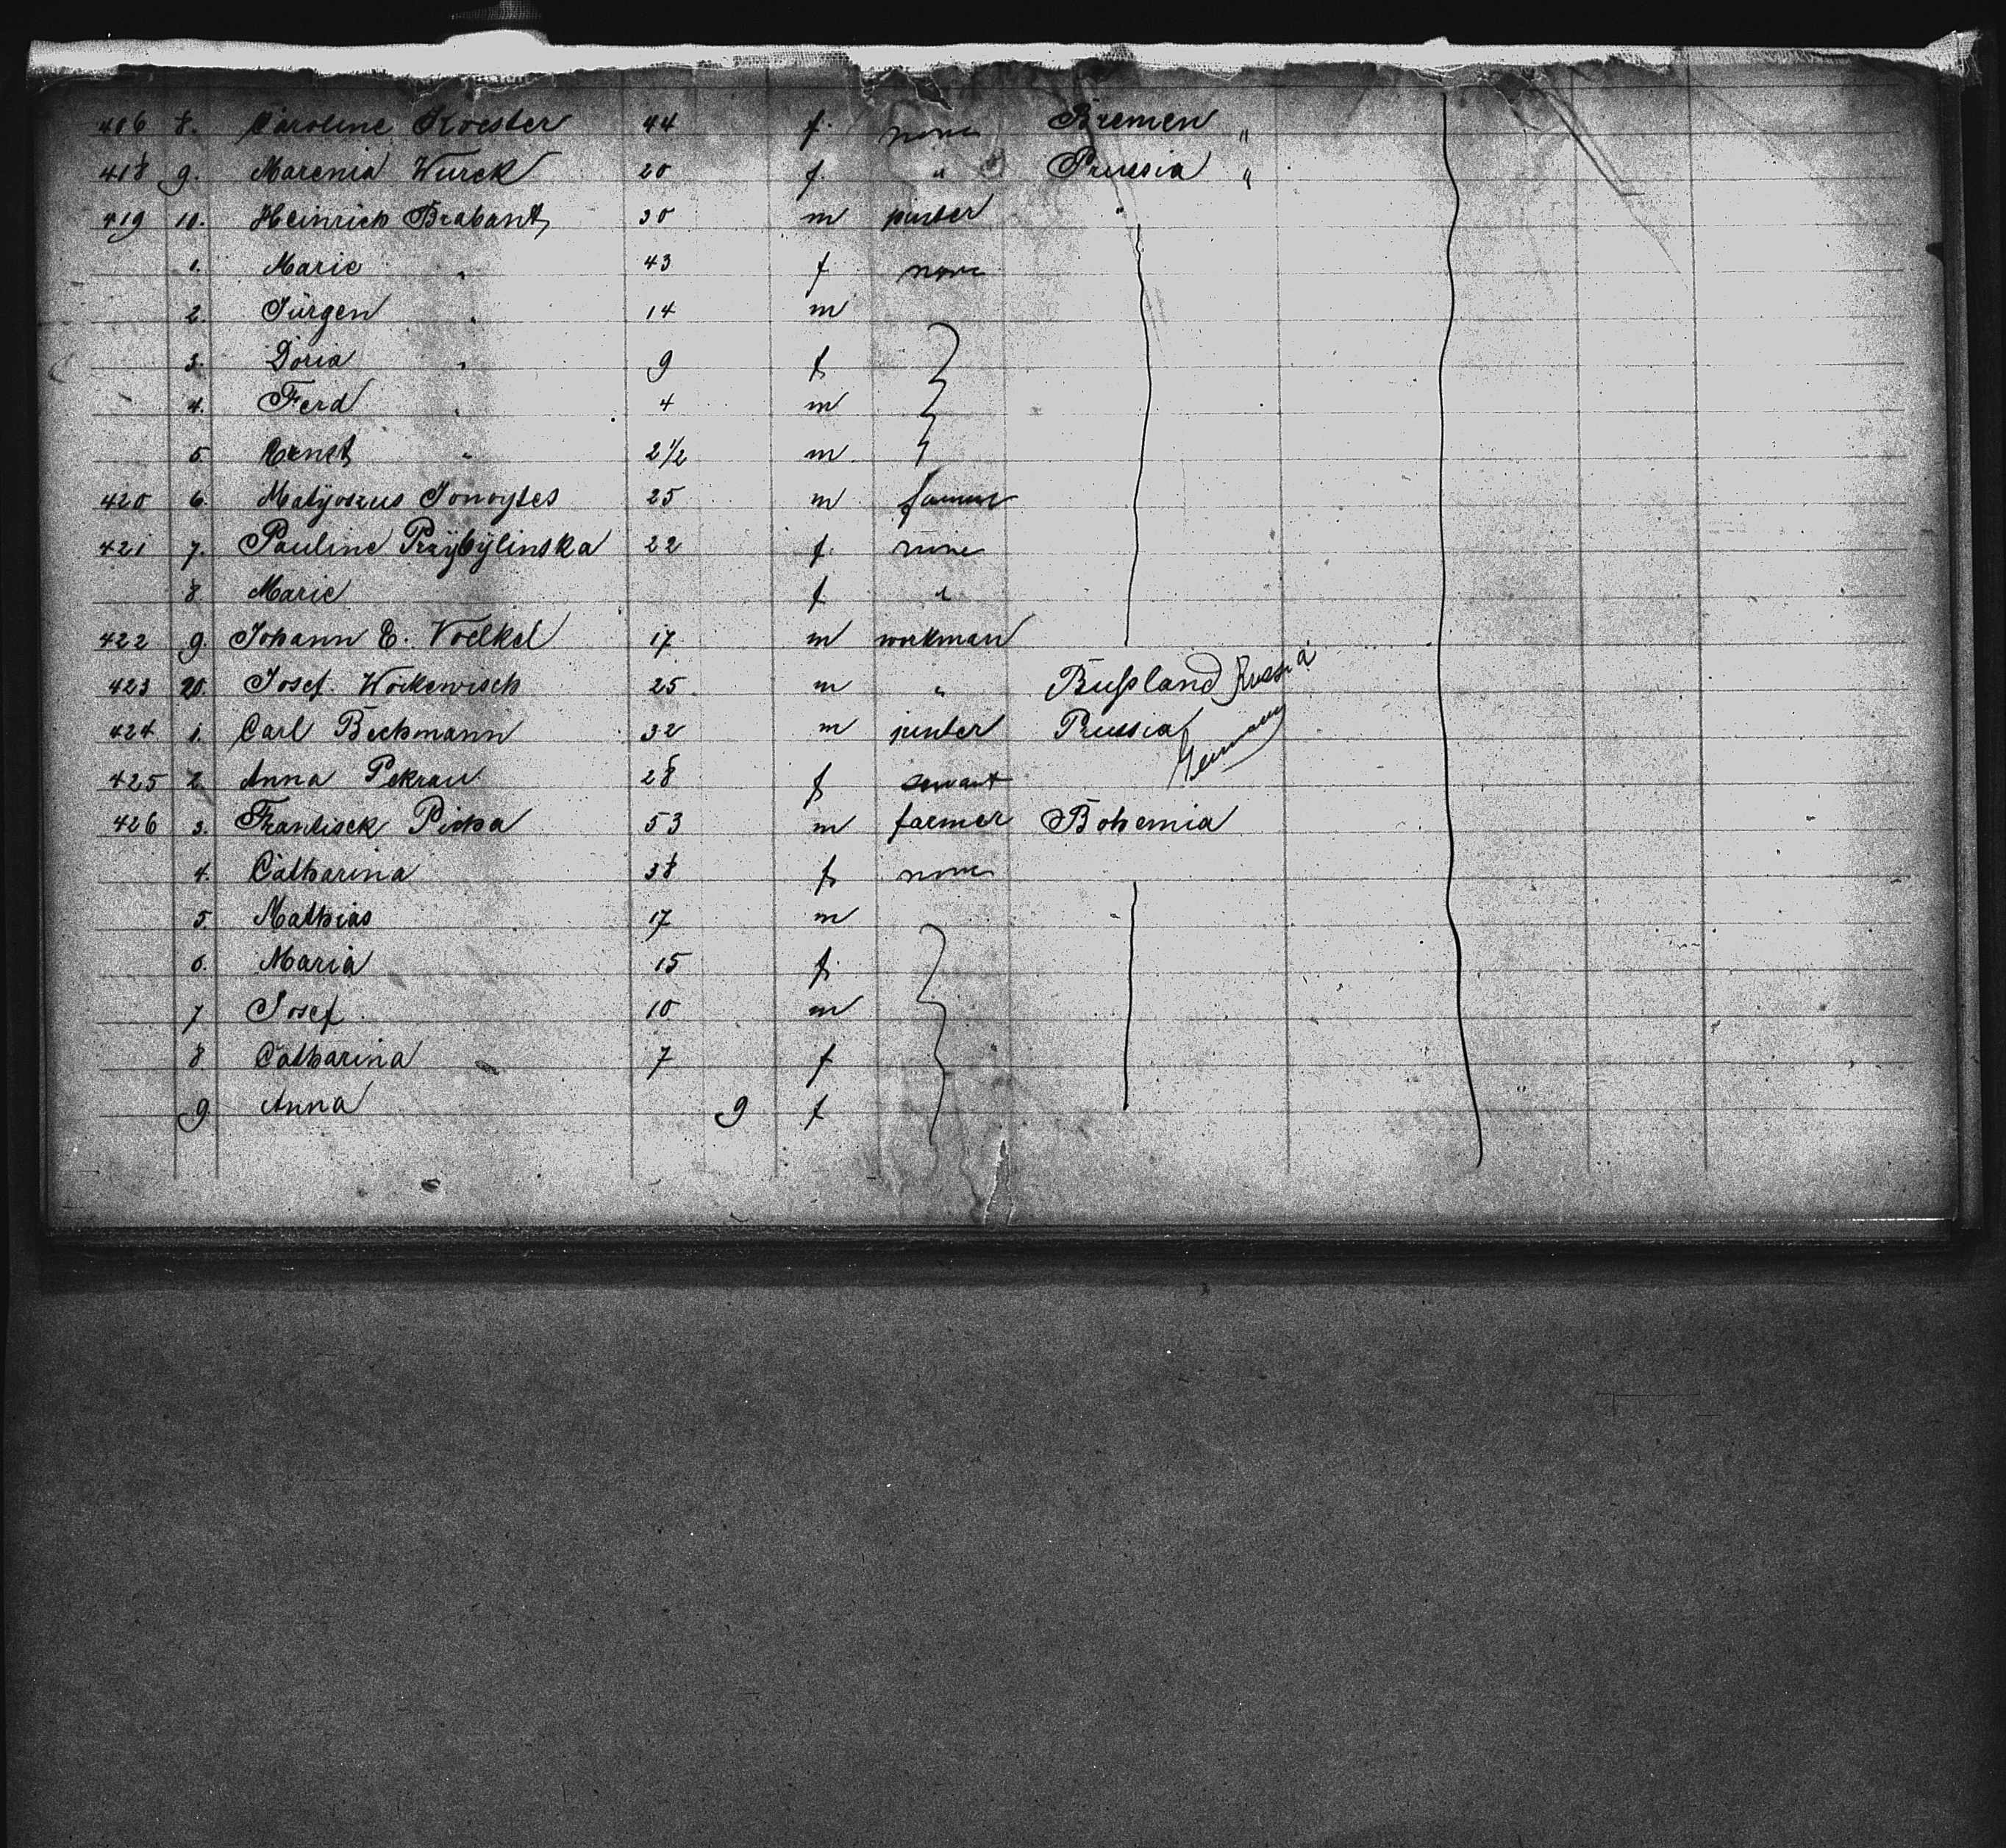 406 8. Caroline Koester 44 f. none Bremen "
418 9. Marenia Wurck 20 f. " Prussia "
419 10. Heinrich Brabant 30 m "
1. Marie " 43 f none
2. Jürgen " 14 m
3. Doria " 9 f
4. Ferd " 4 m
5. Ernst " 2 1/2 m
420 6. Matyoszus Jonoytes 25 m farmer
421 7. Pauline Przybylinska 22 f. none
8 Marie f "
422 9. Johann E. Voelkel 17 m workman
423 20. Josef Wockewisch 25 m " Rußland Russia
424 1. Carl Bechmann 32 m Prussia Germany
425 2. Anna Pekrau 28 f servant
426 3. Frantisek Picha 53 m farmer Bohemia
4. Catharina 38 f. none
5. Mathias 17 m
6. Maria 15 f.
7 Josef 10 m
8 Catharina 7 f
9 Anna 9 f